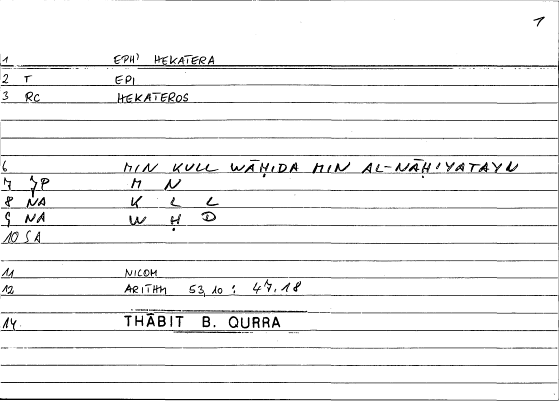 1
1 EPH' HEKATERA
2 T EPI
3 RC HEKATEROS
6 MIN KULL WĀḤIDA MIN AL-NĀḤIYATAYN
7 P M N
8 NA K L L
9 NA W Ḥ D
10 SA
11 NICOM
12 ARITHM 53,10 : 47.18
14 THĀBIT B. QURRA